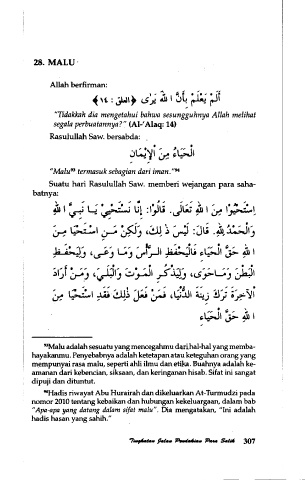 28. MALU
Allah berfirman:
أَلَمْ يَعْلَمْ بِأَنَّ اللهَ يَرَى ﴿العلق : ١٤﴾
"Tidakkah dia mengetahui bahwa sesungguhnya Allah melihat
segala perbuatannya?" (Al-'Alaq: 14)
Rasulullah Saw. bersabda:
الْحَيَاءُ مِنَ الْإِيْمَانِ
"Malu⁹³ termasuk sebagian dari iman."⁹⁴
Suatu hari Rasulullah Saw. memberi wejangan para saha-
batnya:
اِسْتَحْيُوْا مِنَ اللهِ تَعَالَى. قَالُوْا: إِنَّا نَسْتَحْيِيْ يَا نَبِيَّ اللهِ
وَالْحَمْدُ لِلّٰهِ. قَالَ: لَيْسَ ذٰلِكَ، وَلٰكِنْ مَنِ اسْتَحْيَا مِنَ
اللهِ حَقَّ الْحَيَاءِ فَالْيَحْفَظِ الرَّأْسَ وَمَا وَعَى، وَلْيَحْفَظِ
الْبَطْنَ وَمَا حَوَى، وَلْيَذْكُرِ الْمَوْتَ وَالْبَلَى، وَمَنْ أَرَادَ
الْآخِرَةَ تَرَكَ زِيْنَةَ الدُّنْيَا، فَمَنْ فَعَلَ ذٰلِكَ فَقَدِ اسْتَحْيَا مِنَ
اللهِ حَقَّ الْحَيَاءِ
⁹³Malu adalah sesuatu yang mencegahmu dari hal-hal yang memba-
hayakanmu. Penyebabnya adalah ketetapan atau keteguhan orang yang
mempunyai rasa malu, seperti ahli ilmu dan etika. Buahnya adalah ke-
amanan dari kebencian, siksaan, dan keringanan hisab. Sifat ini sangat
dipuji dan dituntut.
⁹⁴Hadis riwayat Abu Hurairah dan dikeluarkan At-Turmudzi pada
nomor 2010 tentang kebaikan dan hubungan kekeluargaan, dalam bab
"Apa-apa yang datang dalam sifat malu". Dia mengatakan, "Ini adalah
hadis hasan yang sahih."
Tingkatan Jalan Pendakian Para Salik 307